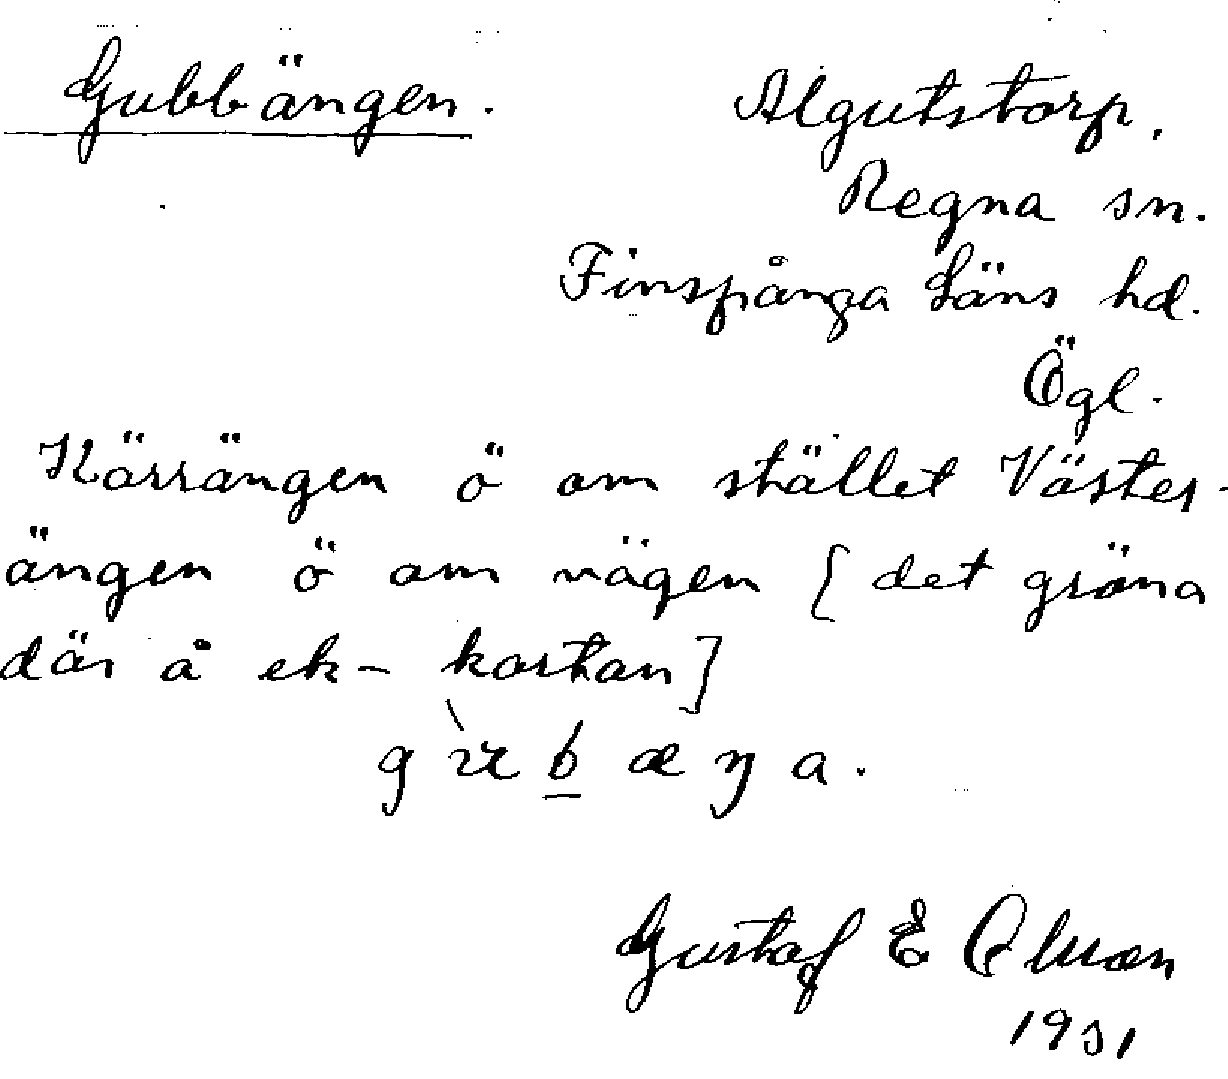 Gubbängen.
Algutstorp,
Regna sn.
Finspånga Läns hd.
Ögl.
Kärrängen ö om stället Väster-
ängen ö om vägen [det gröna
där å ek-kartan]
Gustaf E Olsson
1931